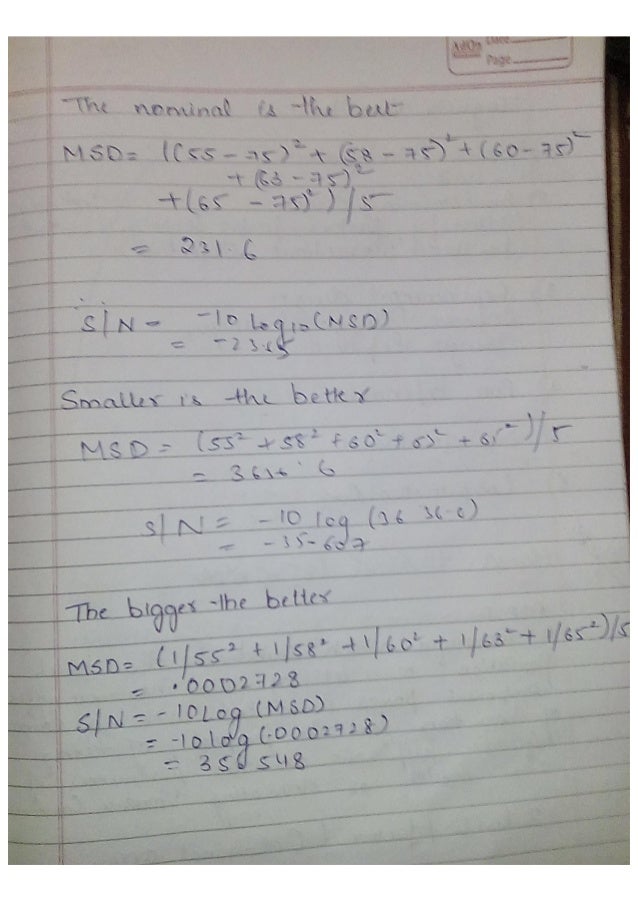 Page
The nominal is the best
MSD= ((55-75)² + (58-75)² + (60-75)²
+ (63-75)²
+(65 - 75)²)/5
= 231.6
S/N = -10 log₁₀(MSD)
Smaller is the better
MSD = (55² + 58² + 60² + 63² + 65²)/5
= 3636.6
S/N = -10 log (3636.6)
= -35.607
The bigger the better
MSD= (1/55² + 1/58² + 1/60² + 1/63² + 1/65²)/5
= .0002728
S/N = -10Log (MSD)
= -10log(.0002728)